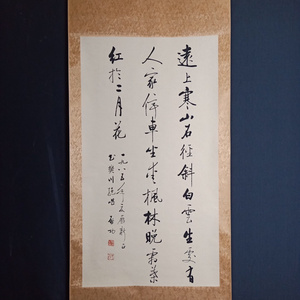 遠上寒山石徑斜白雲生處有
人家停車坐愛楓林晚霜葉
紅於二月花
一九八五年夏
書樊川絕唱 啟功